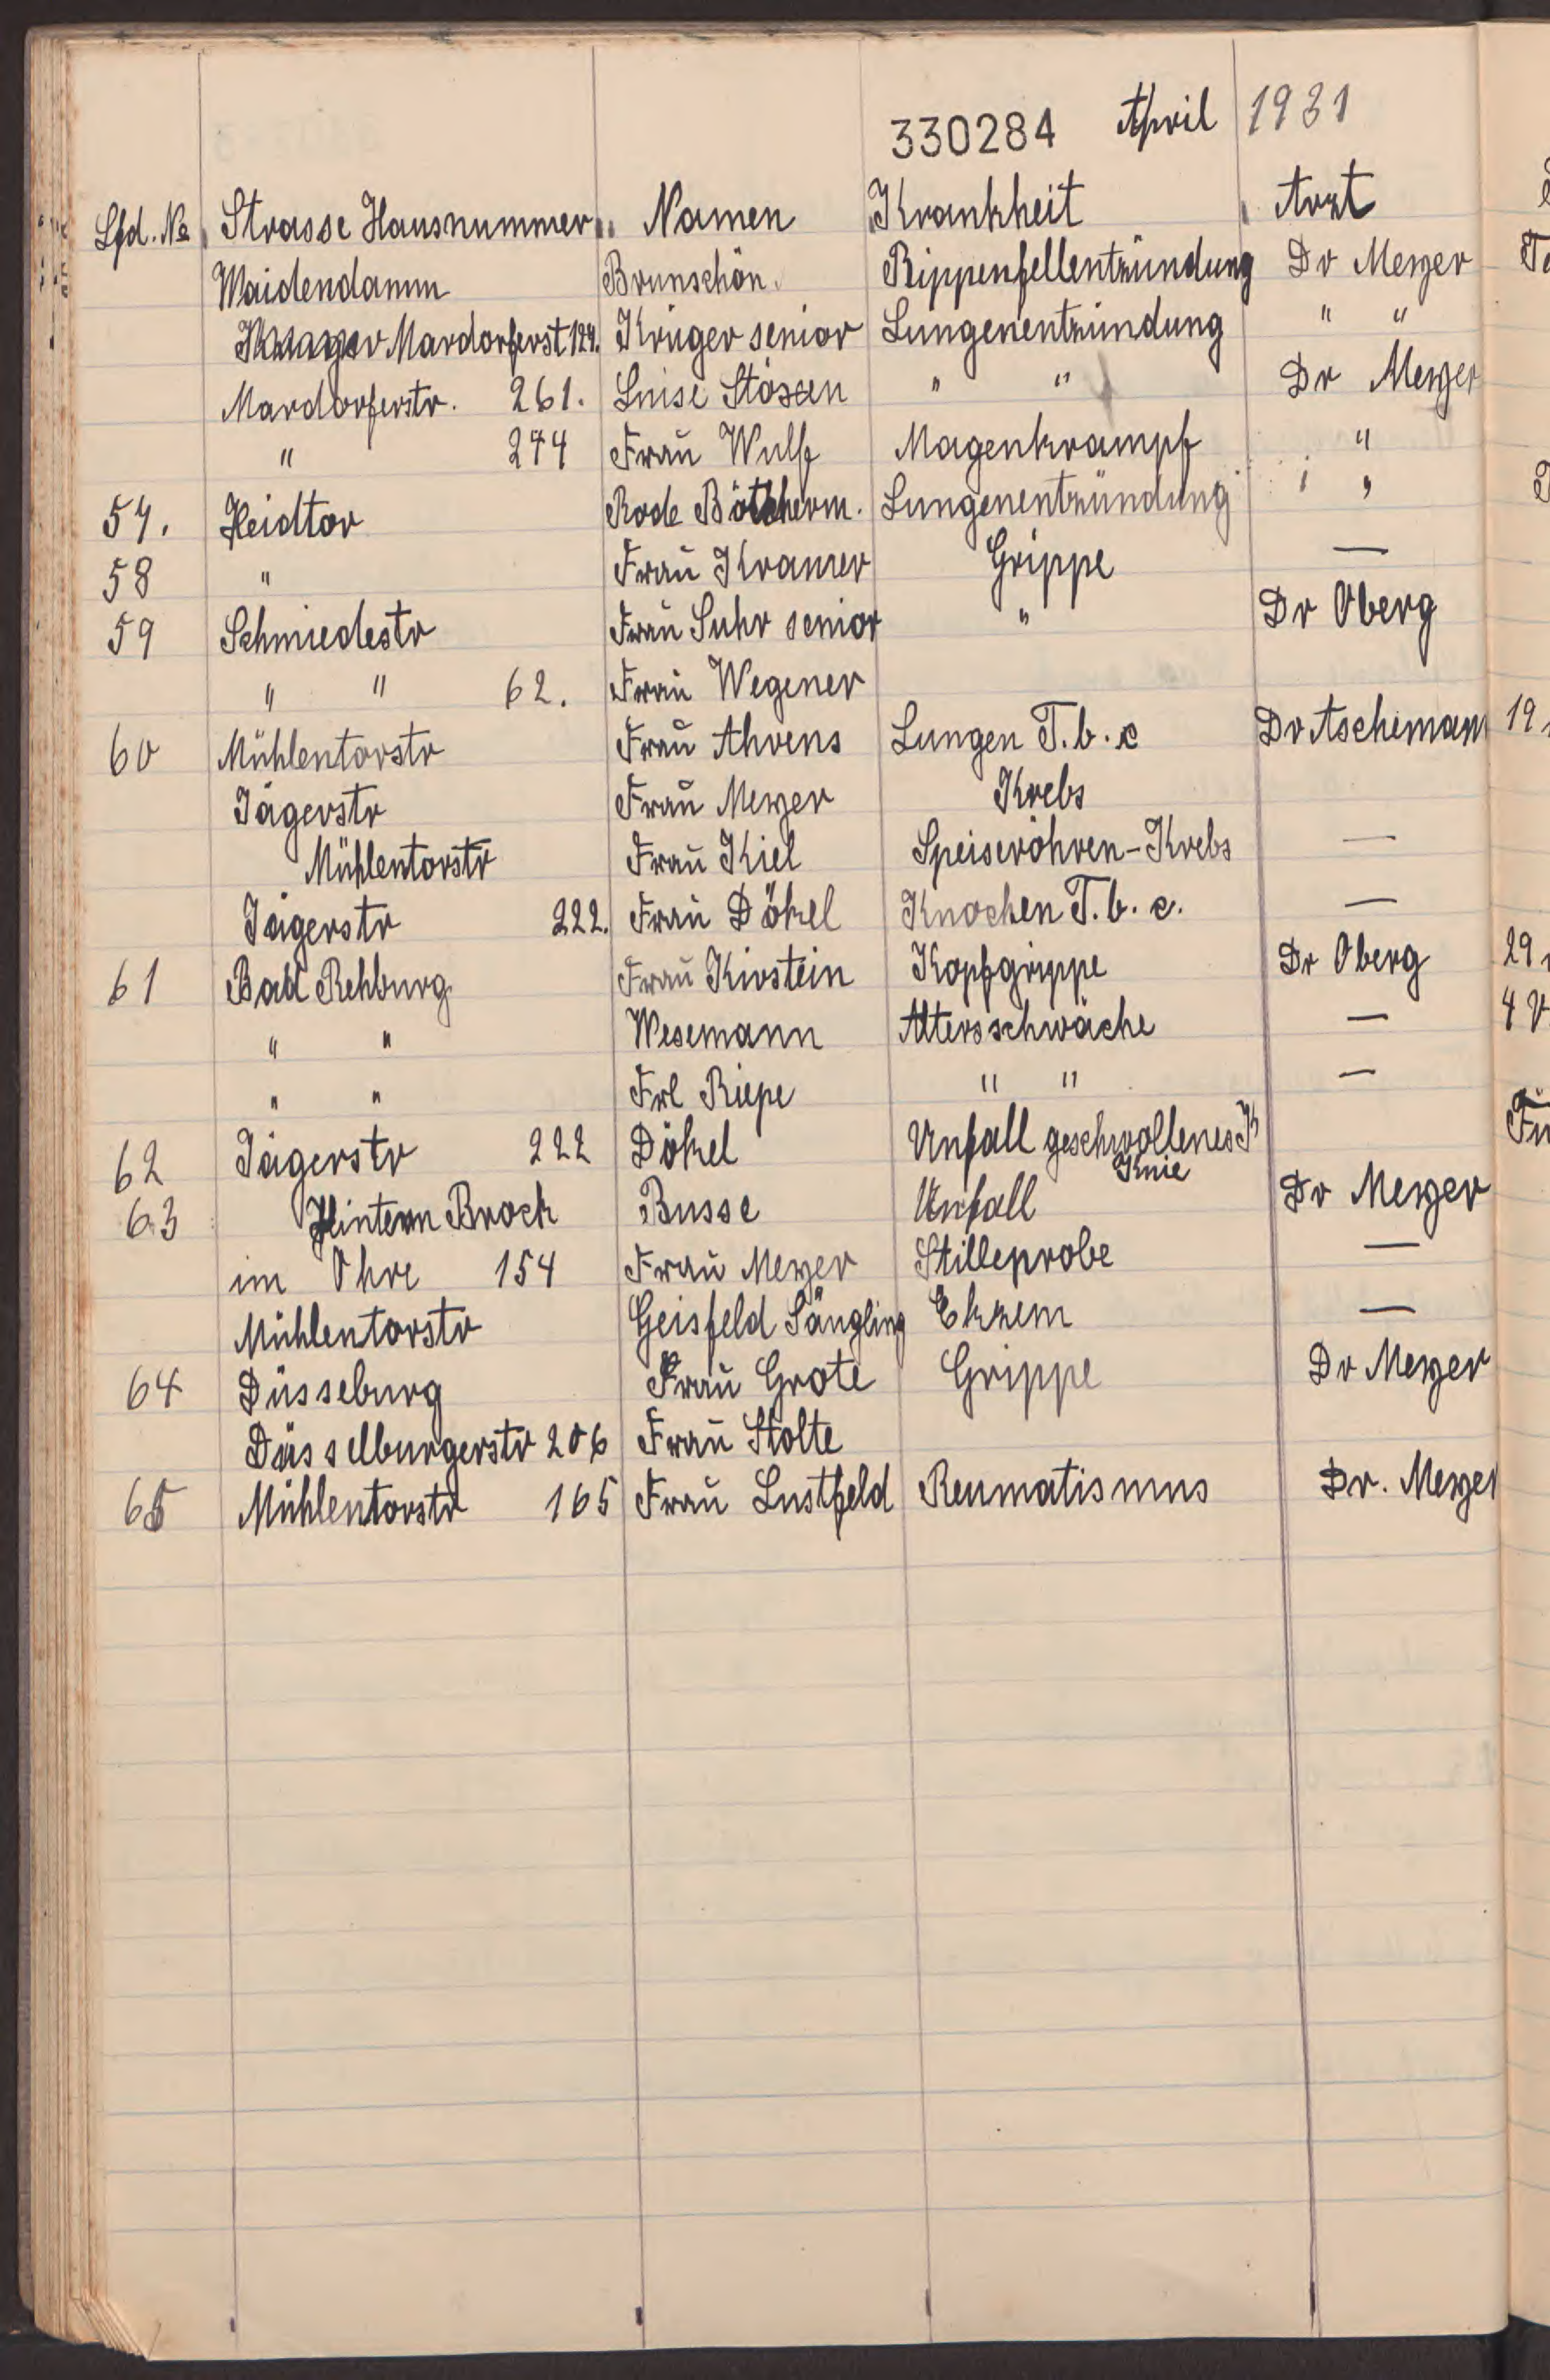 330284 April 1931
Lfd. No Strasse Hausnummer Namen Krankheit Arzt
Waidendamm Brunschön. Rippenfellentzündung Dr Meyer
Mardorferst 124. Krüger senior Lungenentzündung " "
Mardorferstr. 261. Luise Stösen " " Dr Meyer
" 244 Frau Wulf Magenkrampf "
57. Heidtor Rode Bötcherm. Lungenentzündung " "
58 " Frau Kramer Grippe —
59 Schmiedestr Frau Suhr senior " Dr Oberg
" " 62. Frau Wegener
60 Mühlentorstr Frau Ahrens Lungen T.b.c Dr Aschemann
Jägerstr Frau Meyer Krebs
Mühlentorstr Frau Kiel Speiseröhren-Krebs —
Jägerstr 222. Frau Dökel Knochen T.b.c. —
61 Bad Rehburg Frau Kirstein Kopfgrippe Dr Oberg
" " Wesemann Altersschwäche —
" " Frl Riepe " " —
62 Jägerstr 222 Dökel Unfall geschwollenes K
Knie
63 Hintern Brock Busse Unfall Dr Meyer
im Ohre 154 Frau Meyer Stilleprobe —
Mühlentorstr Geisfeld Säugling Ekzem —
64 Düsseburg Frau Grote Grippe Dr Meyer
Düsselburgerstr 206 Frau Stolte
65 Mühlentorstr 165 Frau Lustfeld Reumatismus Dr. Meyer